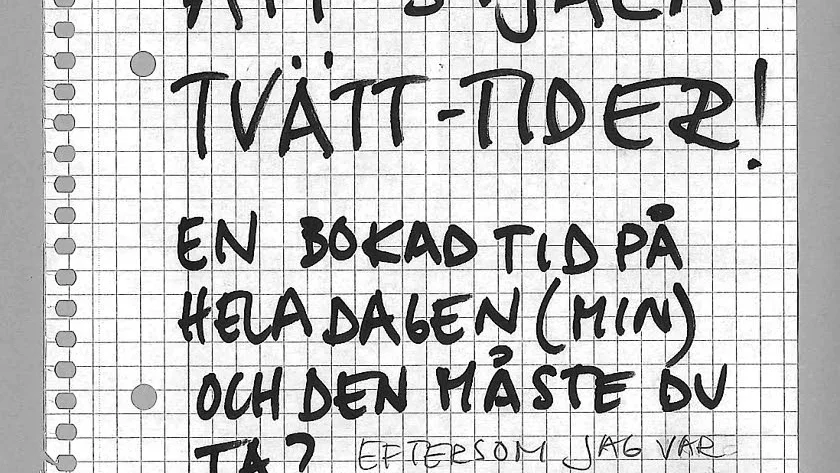 ATT STJÄLA
TVÄTT-TIDER!
EN BOKAD TID PÅ
HELA DAGEN (MIN)
OCH DEN MÅSTE DU
TA? EFTERSOM JAG VAR